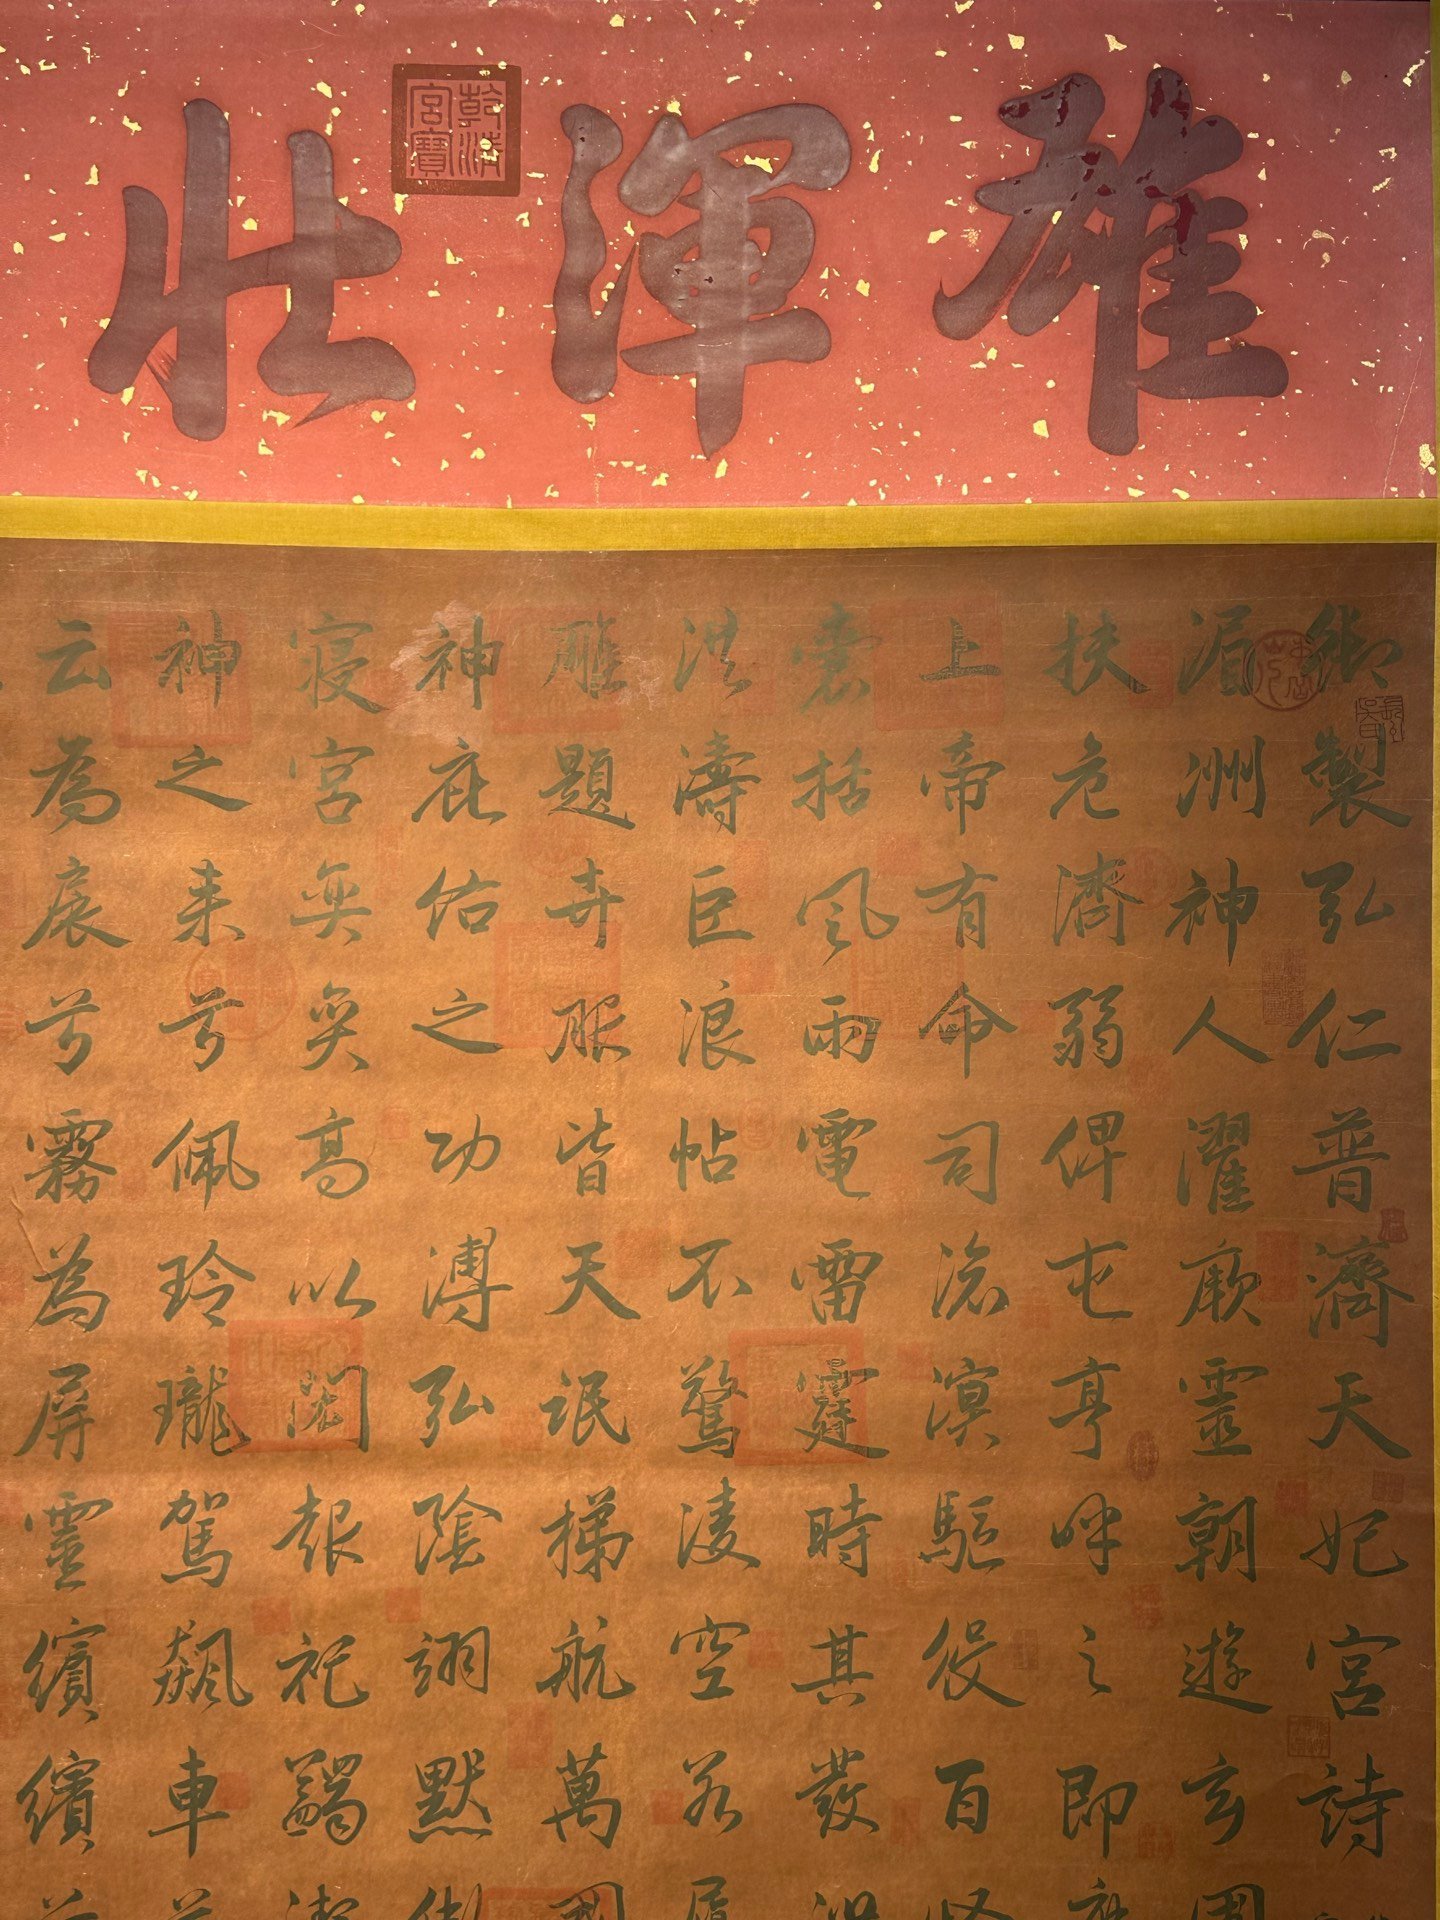 雄渾壯
乾清宮寶
御製弘仁普濟天妃宮詩
湄洲神人濯厥靈朝遊玄圃
扶危濟弱俾屯亨呼之即應
上帝有命司滄溟驅役百怪
囊括風雨電雷霆時其發泄
洪濤巨浪帖不驚淩空若履
雕題卉服皆天氓梯航萬國
神庇佑之功溥弘陰翊默衛
寢宮奕奕高以閎報祀蠲潔
神之来兮佩玲瓏駕飆車兮
云為扆兮霧為屏靈繽繽兮